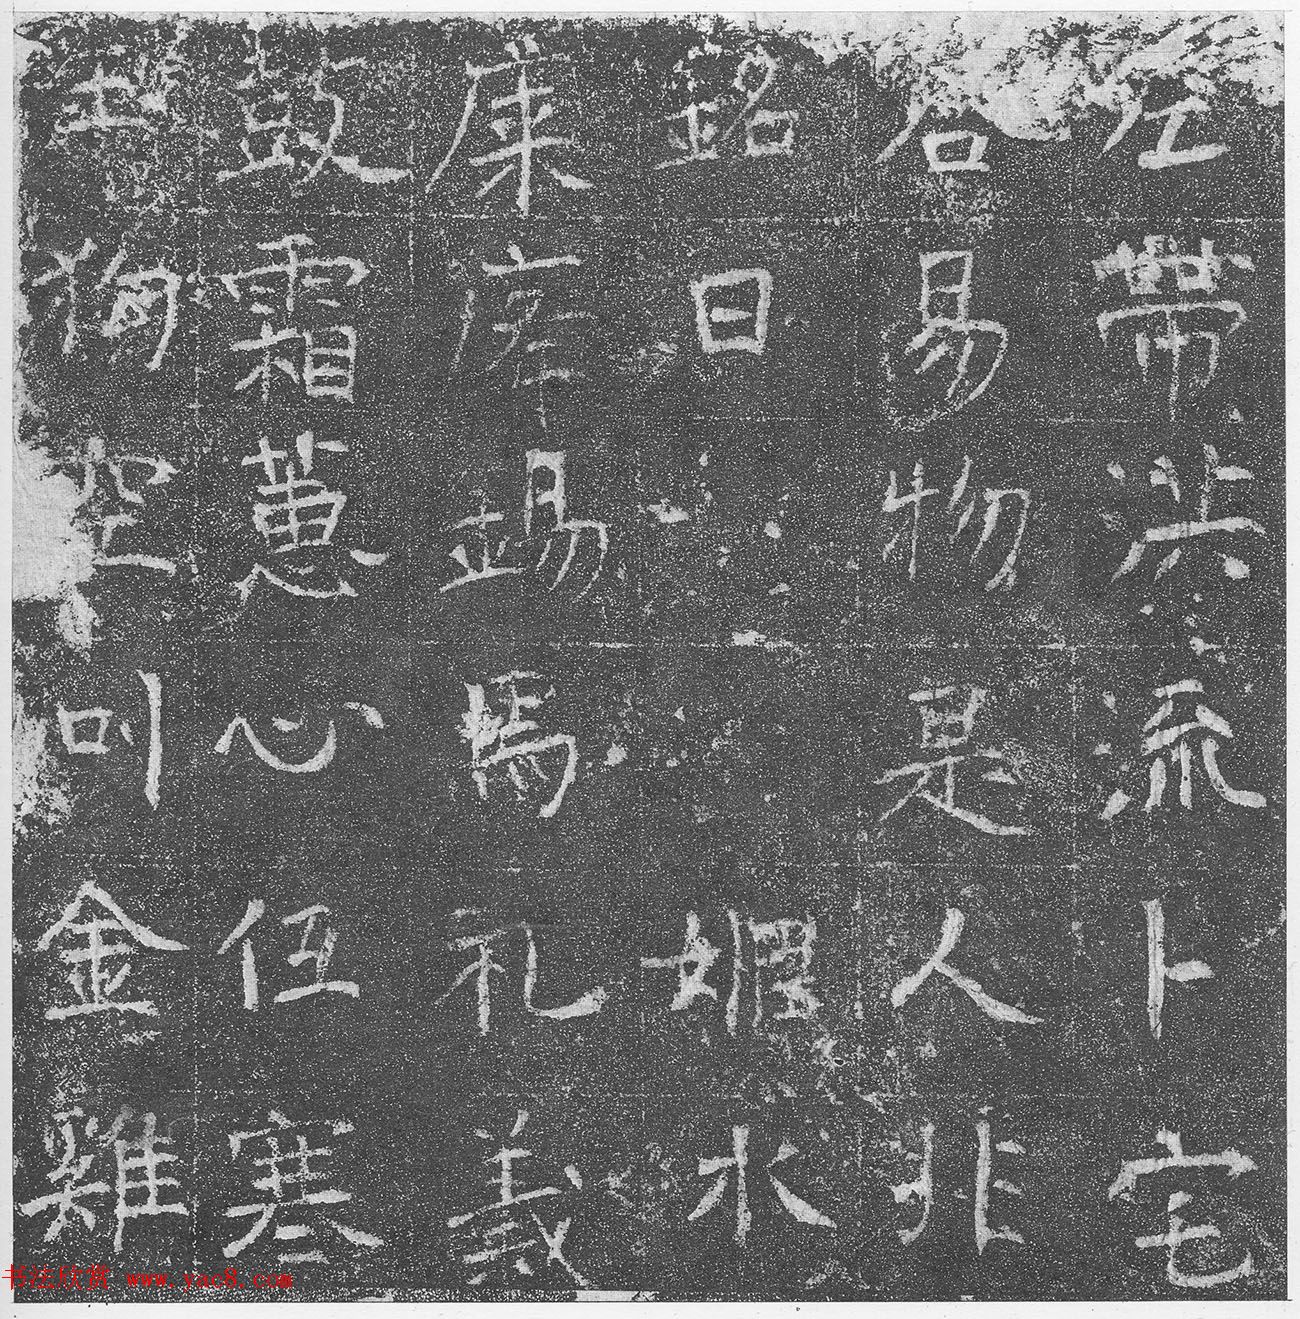 左帶洪流卜宅
易物是人非
銘曰 嬀水
庠焉礼義
鼓霜蕙心伍塞
狗空叫金雞
书法欣赏 www.yac8.com